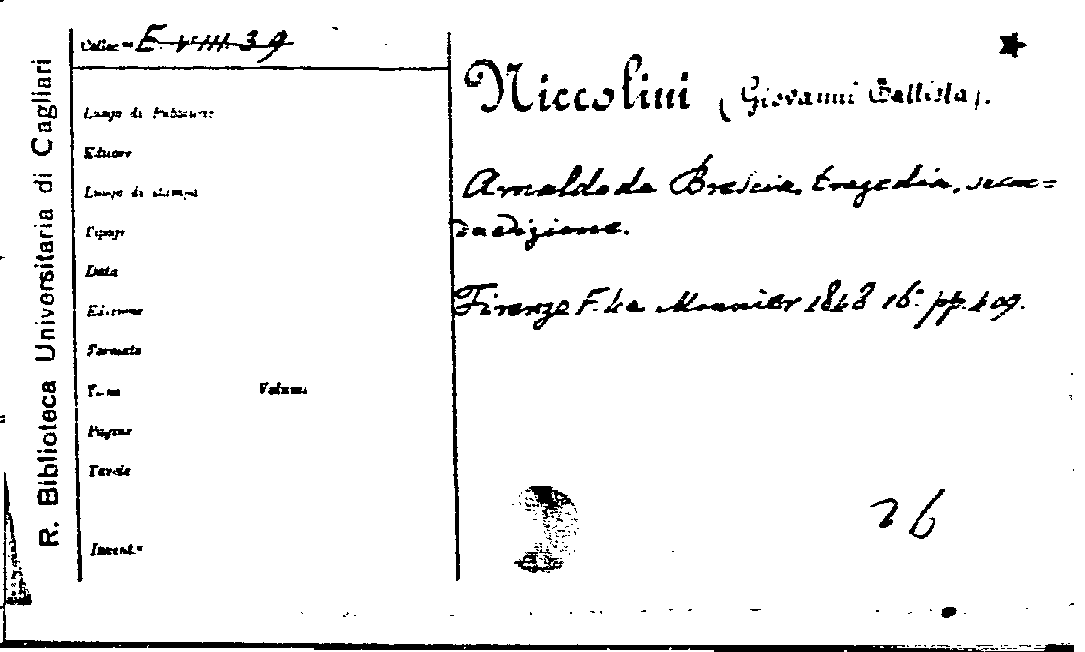 R. Biblioteca Universitaria di Cagliari
Colloc.ne E. VIII. 39
Luogo di Pubblicaz.
Editore
Luogo di stampa
Tipogr.
Data
Edizione
Formato
Tomo Volume
Pagine
Tavole
Invent.º
Niccolini (Giovanni Battista).
Arnaldo da Brescia, tragedia, secon=
da edizione.
Firenze F. Le Monnier 1848 16.º pp. 409.
26